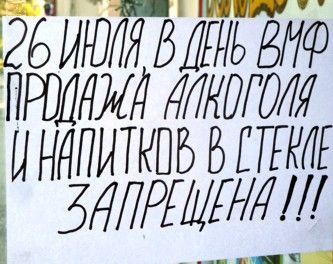 26 ИЮЛЯ, В ДЕНЬ ВМФ
ПРОДАЖА АЛКОГОЛЯ
И НАПИТКОВ В СТЕКЛЕ
ЗАПРЕЩЕНА!!!